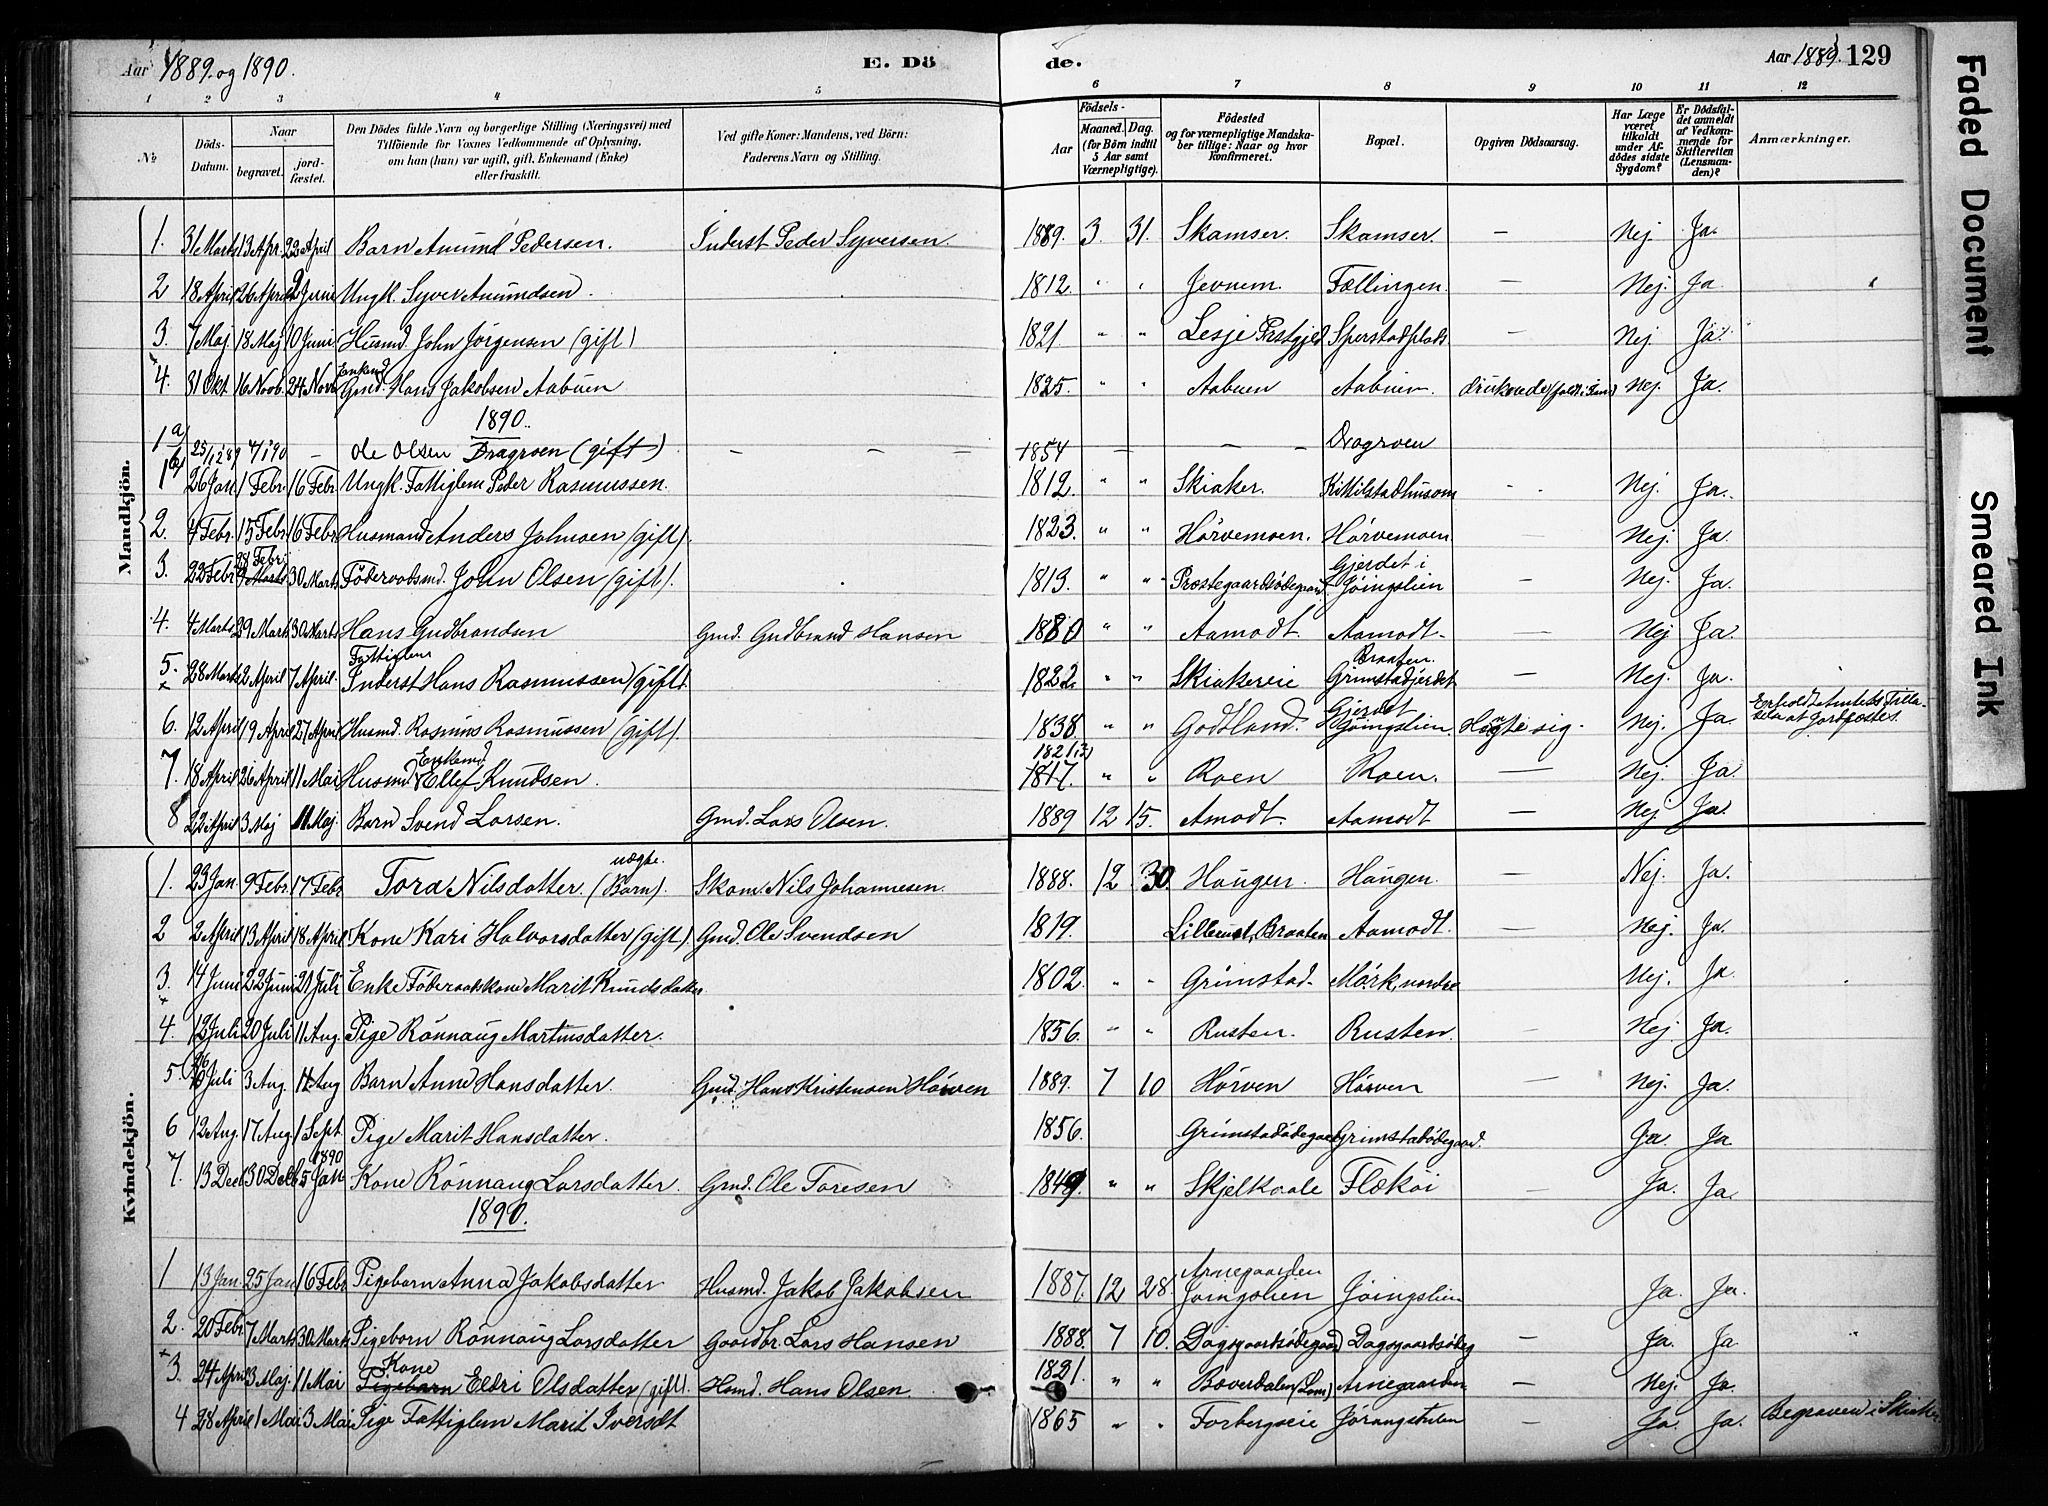 Aar 1889 og 1890.
E. Dö
de.
Aar 1889.
129
1 2 3 4 5 6 7 8 9 10 11 12
№
Döds-Datum.
Naar
begravet.
jord-fæstet.
Den Dödes fulde Navn og borgerlige Stilling (Næringsvei) med
Tilföiende for Voxnes Vedkommende af Oplysning,
om han (hun) var ugift, gift, Enkemand (Enke)
eller fraskilt.
Ved gifte Koner: Mandens, ved Börn:
Faderens Navn og Stilling.
Födsels-
Aar
Maaned. Dag.
(for Börn indtil
5 Aar samt
Værnepligtige).
Födested
og for værnepligtige Mandska-
ber tillige: Naar og hvor
konfirmeret.
Bopæl.
Opgiven Dödsaarsag.
Har Læge
været
tilkaldt
under Af-
dödes sidste
Sygdom?
Er Dödsfal-
det anmeldt
af Vedkom-
mende for
Skifteretten
(Lensman-
den)?
Anmærkninger.
Mandkjön.
1. 31 Marts 13 Apr. 22 April Barn Amund Pedersen. Inderst Peder Syversen. 1889. 3. 31. Skamser. Skamser. — Nej. Ja.
2 18 April 26 April 2 Juni Ungk. Syver Amundsen. 1812. " " Jevnem. Fællingen. — Nej. Ja
3. 7 Maj 18 Maj 10 Juni Husmd. John Jörgensen (gift) 1821. " " Lesje Prstgjeld Sperstadplads — Nej Ja.
4. 31 Okt. 16 Novb. 24 Nov. Enkemd Gmd. Hans Jakobsen Aabuen 1825. " " Aabuen Aabuen. druknede Nej. Ja.
1890.
1 a) 25/12 89 4/1 90 — Ole Olsen Dragroen (gift) — — — 1854 — — — Dragroen
1 b) 26 Jan. 1 Febr. 16 Febr. Ungk. Fattiglem Peder Rasmussen. 1812. " " Skiaker. Kikilstadhusom Nej. Ja.
2. 4 Febr. 15 Febr. 16 Febr. Husmand Anders Johnsen (gift). 1823. " " Hörvemoen. Hörvemoen. — Nej. Ja.
3. 22 Febr. 28 Febr. 30 Marts Föderaadsmd. John Olsen (gift). 1813. " " Præstegaardsödegaard. Gjerdet i Jöingslien — Nej. Ja.
4. 4 Marts 29 Marts 30 Marts Hans Gudbrandsen Gmd. Gudbrand Hansen 1880 " " Aamodt. Aamodt. — Nej Ja.
5. 28 Marts 2 April 7 April. Fattiglem Inderst Hans Rasmussen (gift). 1822. " " Skiakereie Braaten. Grimstadjerdet — Nej. Ja.
6. 12 April 19 April 27 April Husmd. Rasmus Rasmussen (gift). 1838. " " Godtland. Gjerdet Jöingslien. Hængte sig. Nej. Ja. Erholdt Amtets Tilla-
delse at Jordfæstes.
7. 18 April 26 April 11 Mai Husmd. Enkemd. Ellef Knudsen. 1821 (?) 1817. " " Roen Roen. — Nej. Ja.
8 22 April 3 Maj 11 Maj. Barn Svend Larsen. Gmd. Lars Olsen. 1889 12 15. Amodt. Aamodt — Nej Ja.
Kvindekjön.
1. 23 Jan. 9 Febr. 17 Febr. Tora Nilsdatter. (uægte. Barn). Skom. Nils Johannesen. 1888. 12 30 Haugen. Haugen. — Nej. Ja.
2 2 April 13 April 18 April Kone Kari Halvorsdatter (gift). Gmd. Ole Svendsen 1819. Braaten Aamodt. — Nej. Ja.
3. 14 Juni 22 Juni 21 Juli Enke Föderaadskone Marit Knudsdatter 1802. " " Grimstad. Mörk, nordre — Nej. Ja.
4. 12 Juli 20 Juli 11 Aug. Pige Rönnaug Martinsdatter. 1856. " " Rusten. Rusten. — Nej. Ja.
5. Juli 3 Aug. 11 Aug Barn Anne Hansdatter. Gmd. Hans Kristensen Hörven 1889. 7 10 Hörven Hörven — Nej. Ja.
6 12 Aug. 17 Aug. 1 Sept. Pige Marit Hansdatter. 1856. Grimstadödegaard Grimstadödegaard. Ja. Ja.
7. 13 Dec 30 Dec 5 Jan 1890 Kone Rönnaug Larsdatter. Gmd. Ole Toresen 1849. " " Skjelkvale Flæköi Ja. Ja.
1890.
1 13 Jan. 25 Jan 16 Febr. Pigebarn Anna Jakobsdatter Husmd. Jakob Jakobsen 1887. 12 28. Arnegaarden Jöingslien Jöingslien Ja. Ja.
2. 20 Febr. 7 Marts 30 Marts Pigebarn Rönnaug Larsdatter Gaardbr. Lars Hansen 1888. 7 10. Dagsgaardsödegaard Dagsgaardsödeg — Ja. Ja
3. 24 April 3 Maj. 11 Mai Kone Pigebarn Eldri Olsdatter (gift). Hsmd. Hans Olsen 1821. " " Bøverdalen (Lom) Arnegaarden — Nej. Ja.
4 28 April 1 Mai 3 Mai Pige Fattiglem Marit Iversdt 1865 " " Forbergseie Jörangstulen — Ja. Ja. Begraven i Skiaker
Faded Document
Smeared Ink